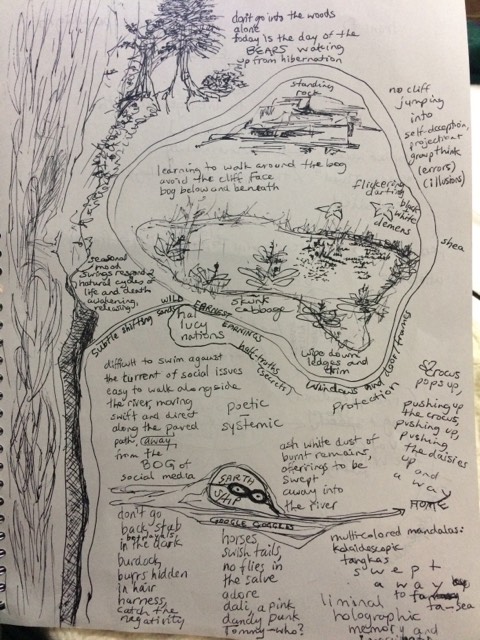 don't go into the woods
alone
today is the day of the
BEARS waking
up from hibernation
standing
rock
no cliff
jumping
into
self-deception,
projection +
group think
(errors)
(illusions)
learning to walk around the bog
avoid the cliff face
bog below and beneath
flickering
darting
black
white
demons
shea
seasonal
mood
swings respond 2
natural cycles of
life and death
awakening,
releasing.
subtle shifting sands
wild
EARNEST
EARNINGS
hal
lucy
nations
skunk
cabbage
half-truths
(secrets)
wipe down
ledges and
trim
windows and door frames
protection
difficult to swim against
the current of social issues
easy to walk alongside
the river, moving
swift and direct
along the paved
path, away
from the
BOG of
social media
poetic
systemic
crocus
pops up,
pushing up
the crocus,
pushing up,
pushing
the daisies
up
and
a way
HOME
ash white dust of
burnt remains,
offerings to be
swept
away into
the river
EARTH
SHIP
GOOGLE GOGGLES
don't go
back stab
betrayals
in the dark
burdock
burrs hidden
in hair
harness,
catch the
negativity
horses,
swish tails,
no flies in
the salve
adore
dali, a pink
dandy punk
Tommy-who?
multi-colored mandalas:
kaleidoscopic
tangkas
swept
a way
to
ta-sea
liminal
holographic
memory and